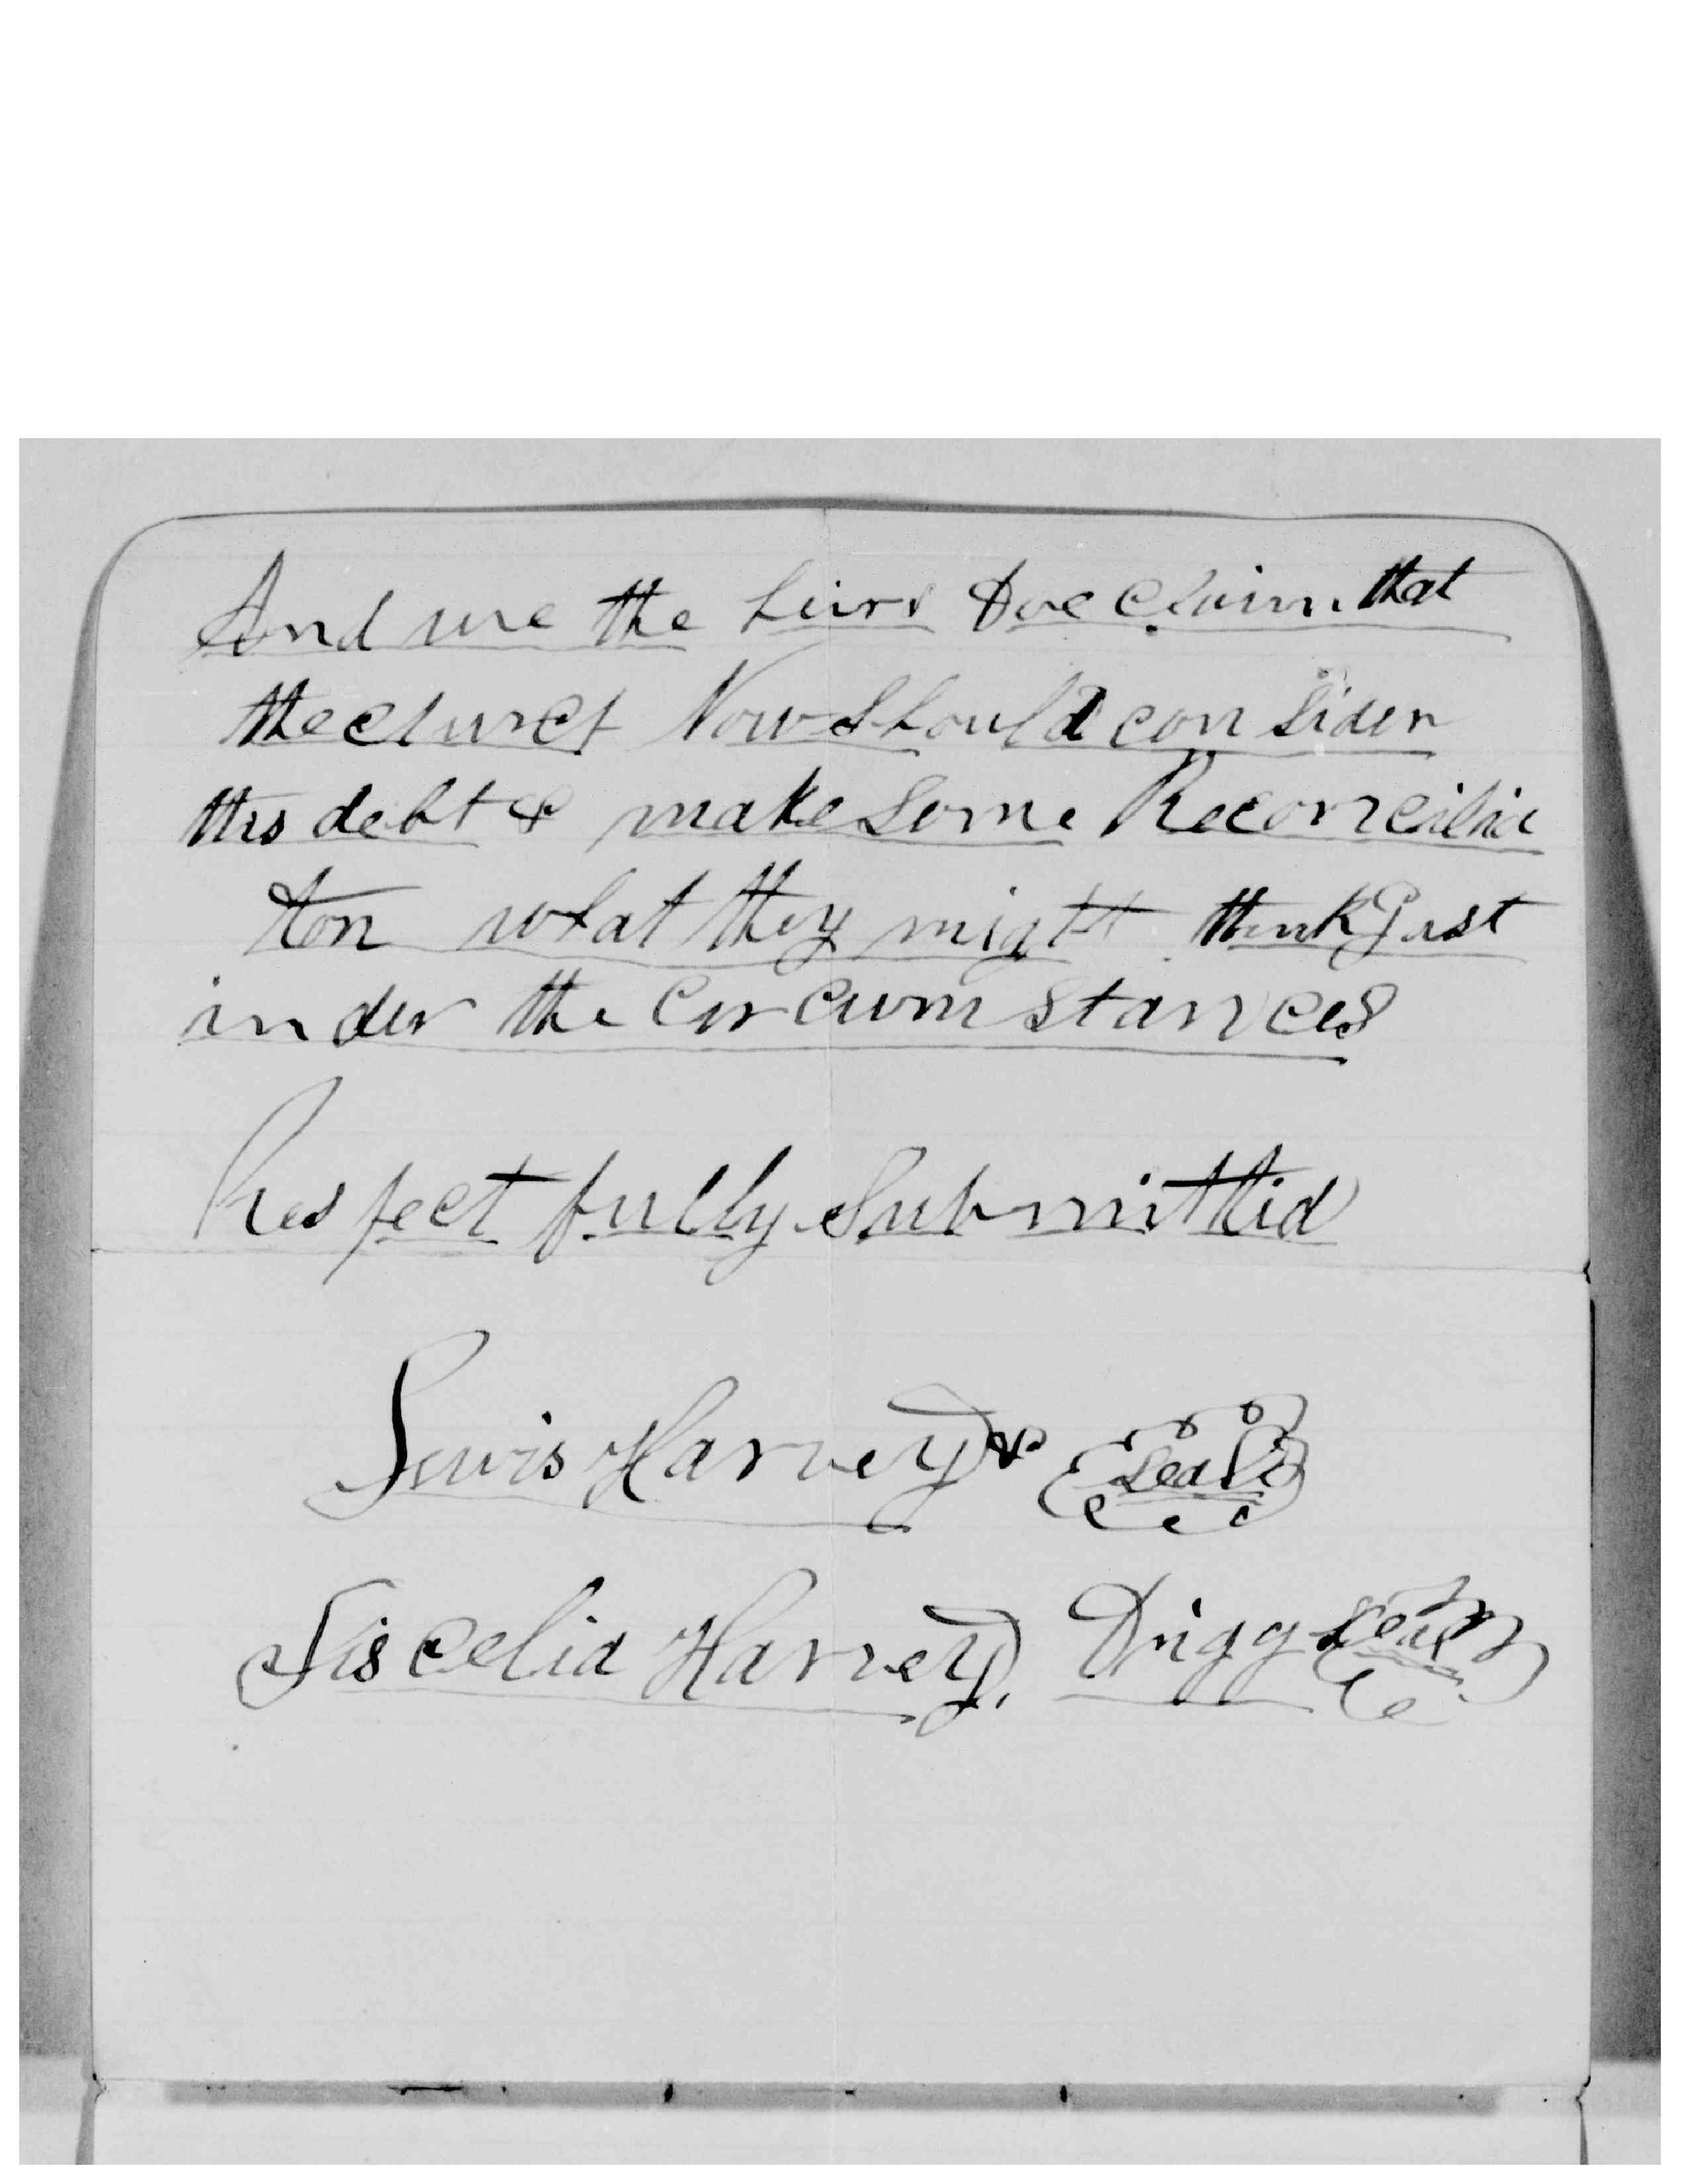 And we the heirs Doe claim that
the church Now should consider
this debt & make some Reconcilia
tion what they might think Just
under the Circumstances
Respectfully Submitted
Lewis Harvey & Seal
Siscelia Harvey, Drigg Seal